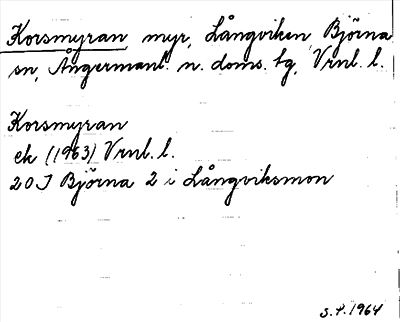 Korsmyran myr, Långviken, Björna
sn, Ångermanl. n. doms. tg, Vrnl. l.
Korsmyran
ek (1963) Vrnl. l.
20 J Björna 2 i Långviksmon
S.P. 1964